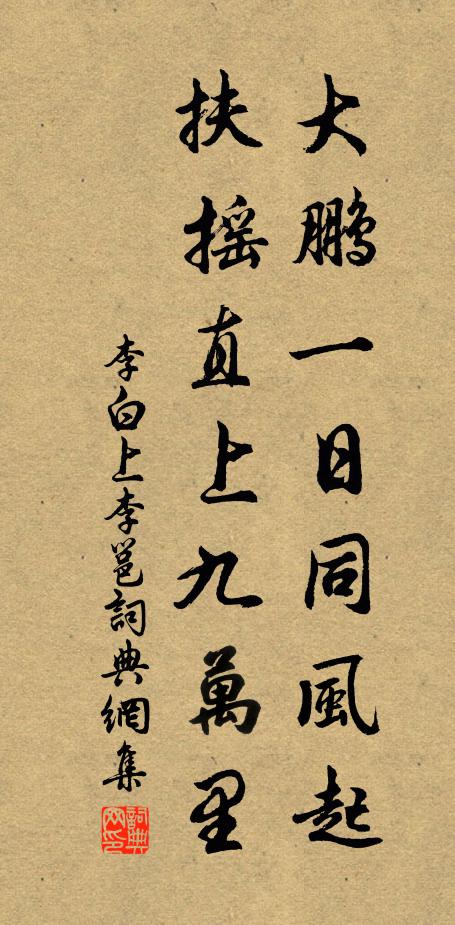 大鵬一日同風起
扶摇直上九萬里
李白上李邕詞典網集
詞典
网印